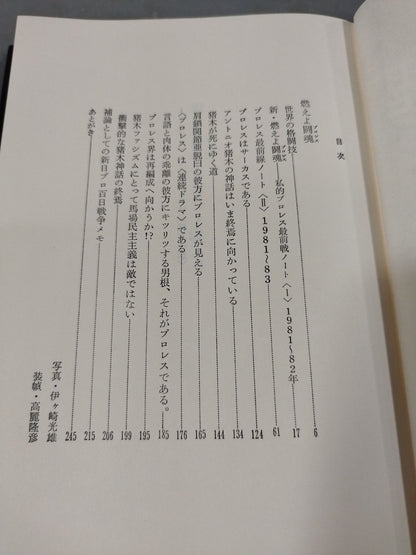 目次
燃えよ闘魂
世界の格闘技 6
新・燃えよ闘魂――私的プロレス最前戦ノート〈Ⅰ〉1981〜82年 17
プロレス最前線ノート〈Ⅱ〉1981〜83 61
プロレスはサーカスである 124
アントニオ猪木の神話はいま終焉に向かっている 134
猪木が死にゆく道 144
肩鎖関節亜脱臼の彼方にプロレスが見える 165
〈プロレス〉は〈連続ドラマ〉である 176
言語と肉体の乖離の彼方にキツリツする男根、それがプロレスである。 185
プロレス界は再編成へ向かうか!? 195
猪木ファシズムにとって馬場民主主義は敵ではない 199
衝撃的な猪木神話の終焉 206
補論としての新日プロ百日戦争メモ 215
あとがき 245
写真・伊ヶ崎光雄
装幀・高麗隆彦